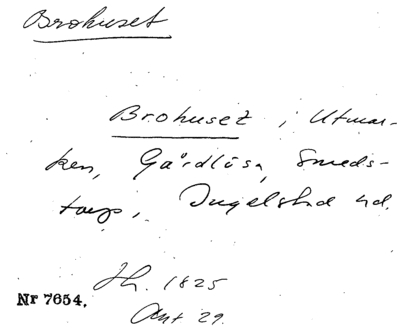 Brohuset
Brohuset i Utmar-
ken, Gärdlösa, Smeds-
torp, Ingelstad hd.
Jh. 1825
Ant 29.
Nr 7654.